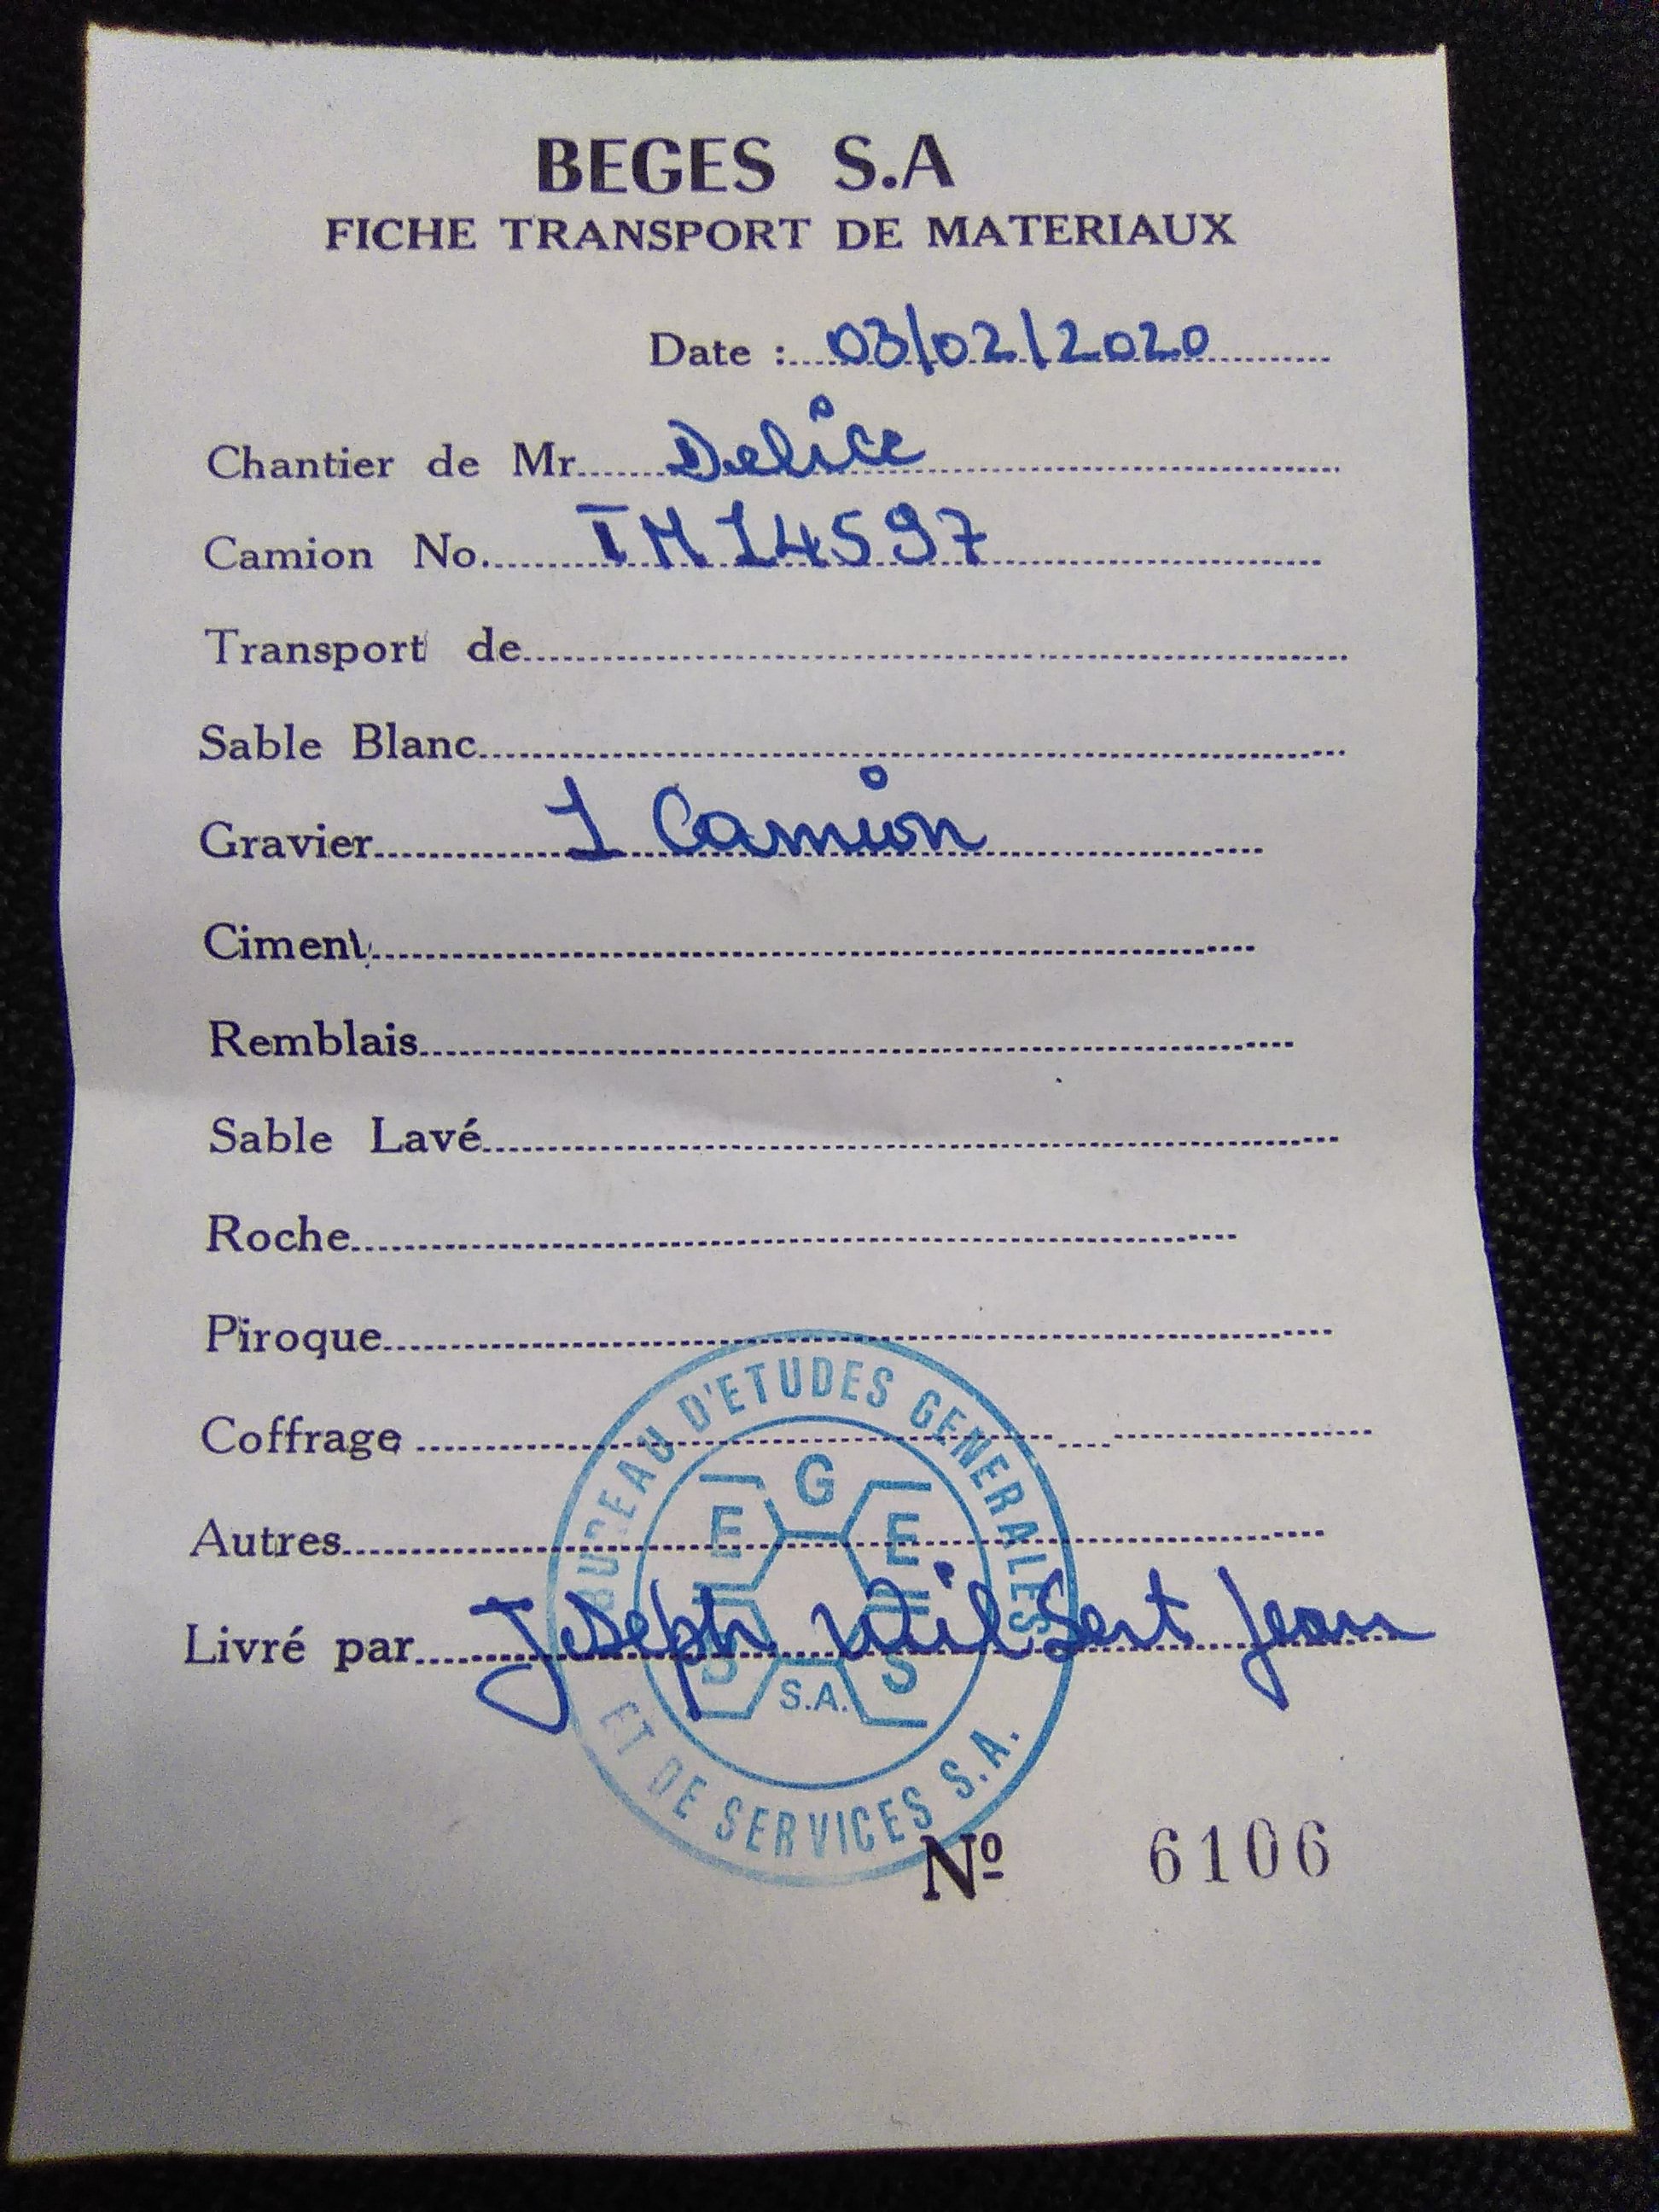 BEGES S.A
FICHE TRANSPORT DE MATERIAUX
Date : 03/02/2020
Chantier de Mr. Delice
Camion No. TM14597
Transport de
Sable Blanc
Gravier 1 Camion
Ciment
Remblais
Sable Lavé
Roche
Piroque
Coffrage
Autres
Livré par Joseph Jean
BUREAU D'ETUDES GENERALES
ET DE SERVICES S.A.
G
E E
S S
S.A.
Nº 6106